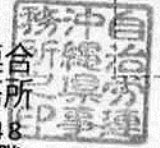 合
所
自治労連
沖縄県事
務所之印